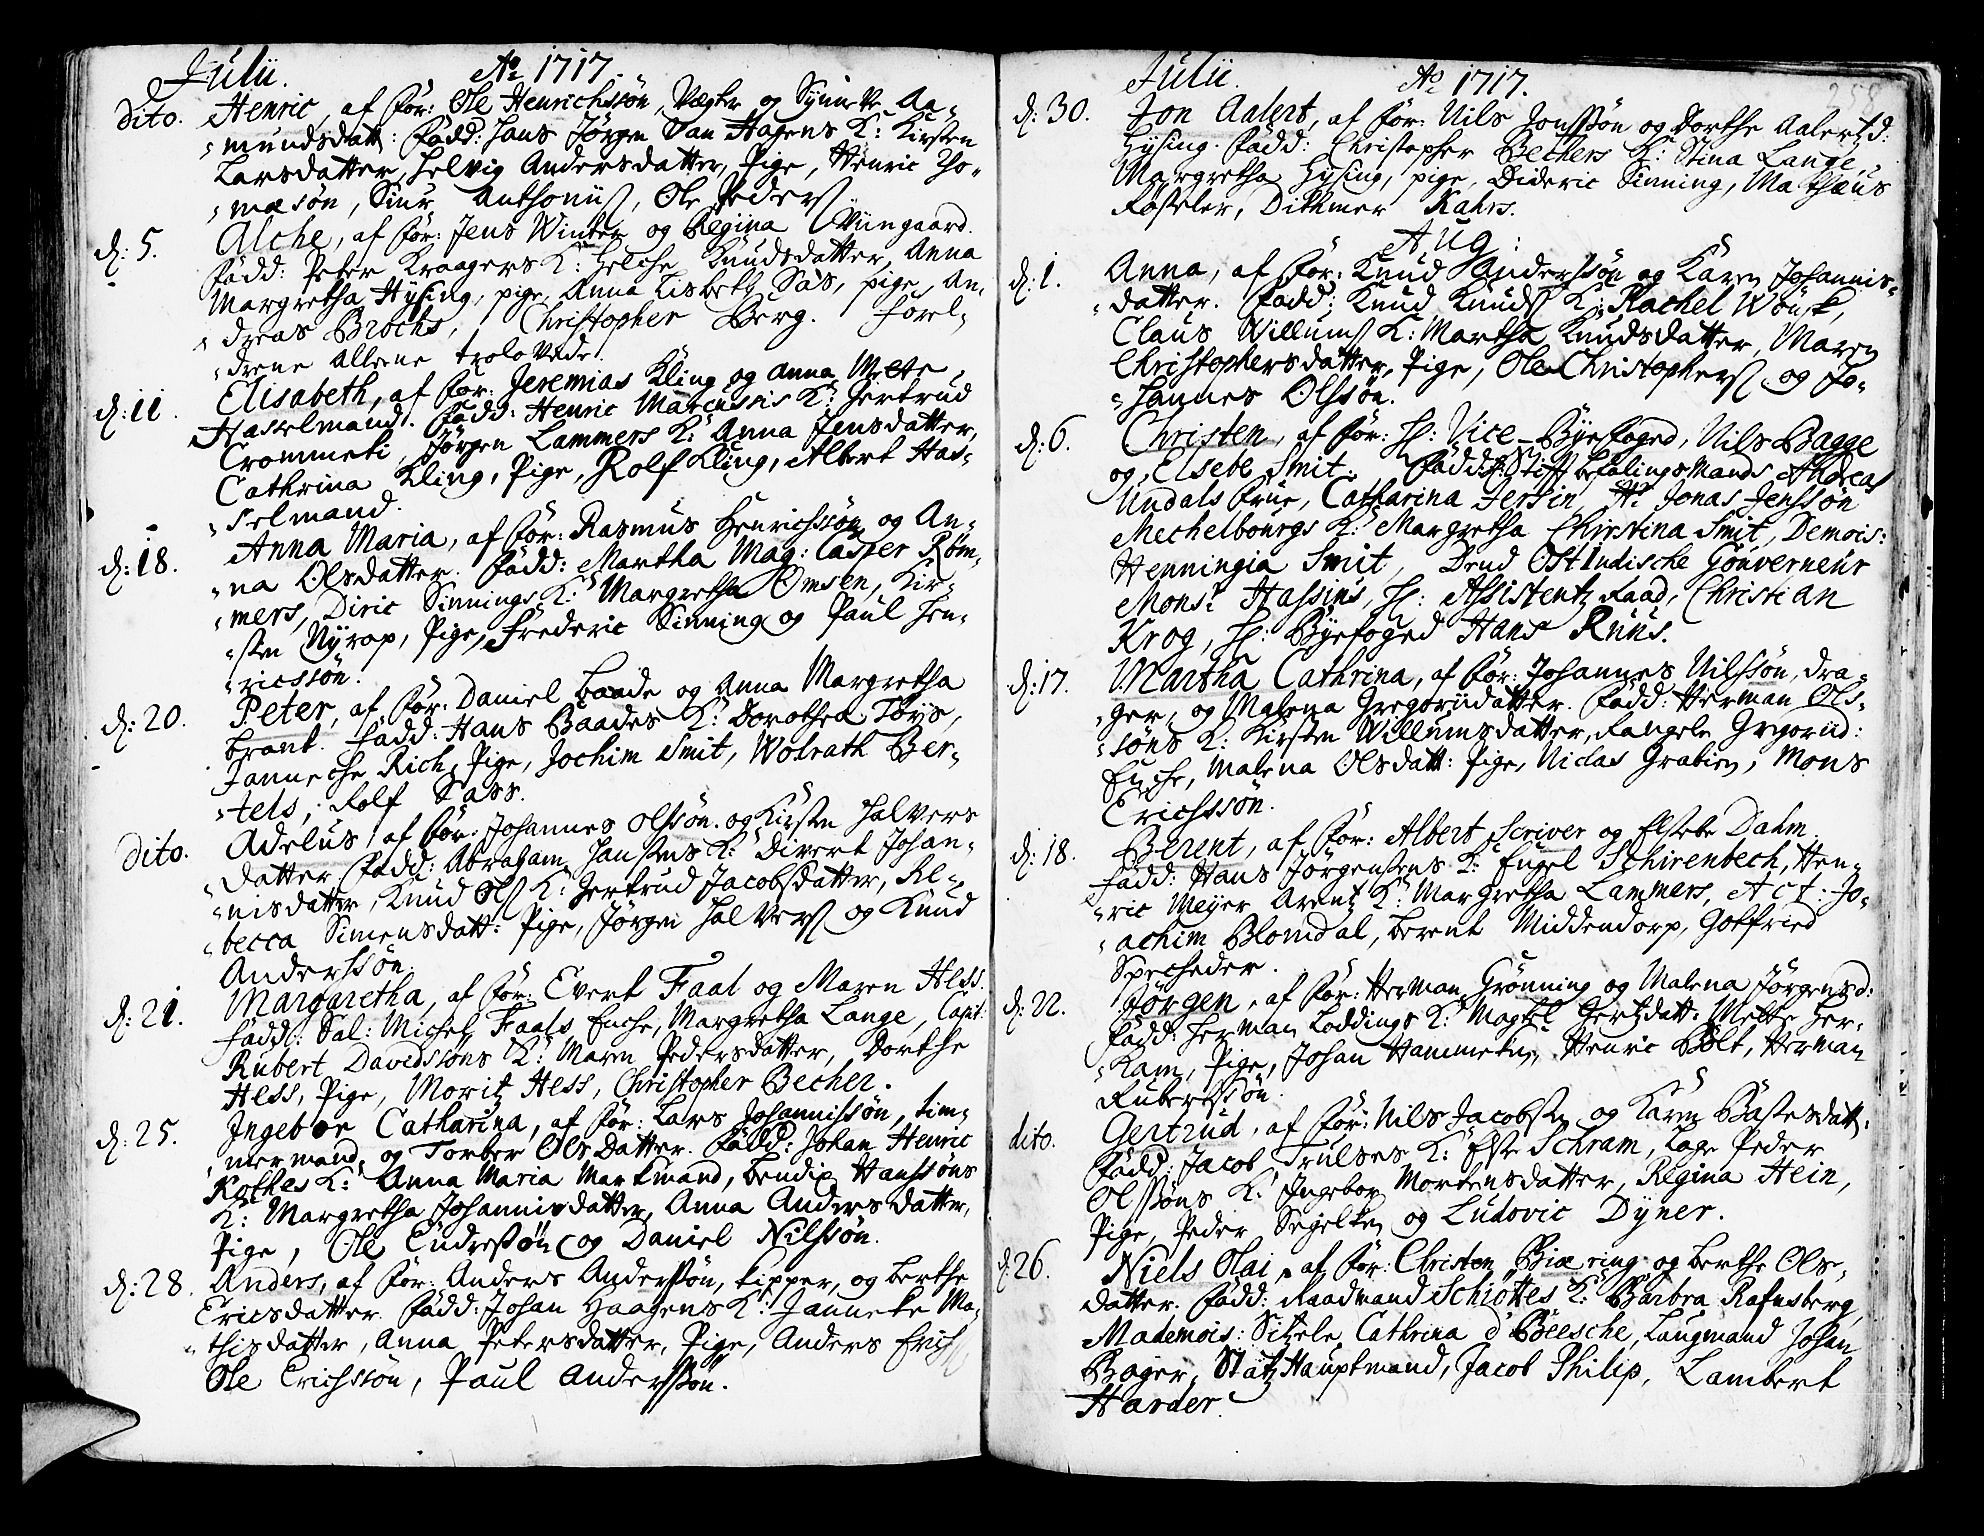 Julii. Ao 1717.
dito. Henric, af for: Ole Henrichssön, Vægter og Synneve Aa-
-mundsdatt: Fadd: Hans Jörgen Van Hagens K: Kirsten
Larsdatter, Helvig Andersdatter, Pige, Henric Tho-
-mæsön, Siur Anthoniiß, Ole Pederß
d: 5. Alche, af for: Jens Winter og Regina Wiingaard.
Fadd: Peter Kraagers K: Helche Knudsdatter, Anna
Margretha Hysing, pige, Anna Lisbeth Sas, pige, An-
dreas Brochs, Christopher Berg. Forel-
drene allene trolovede.
d: 11. Elisabeth, af for: Jeremias Kling og Anna Mete
Hasselmand. Fadd: Henric Marcussis K: Gertrud
Crommeti, Jörgen Lammers K: Anna Jensdatter,
Cathrina Kling, Pige, Rolf Kling, Albert Has-
-selmand.
d: 18. Anna Maria, af for: Rasmus Henrichssön og An-
-na Olsdatter. Fadd: Martha Mag: Casper Röm-
-mers, Diric Sinnings K: Margretha Omsen, Kir-
-sten Nyrop, Pige, Frederic Sinning og Paul Hen-
-ricssön.
d: 20. Peter, af for: Daniel Baade og Anna Margretha
Brant. Fadd: Hans Baades K: Dorothea Töys,
Janneche Rich, Pige, Jochim Smit, Wolrath Ber-
-tels, Rolf Sass.
dito. Adelus, af for: Johannes Olssön og Kirsten Halvers
datter. Fadd: Abraham Hansens K: Divert Johan-
-nisdatter, Knud Olß K: Gertrud Jacobsdatter, Re-
-becca Simensdatt: Pige, Jörgen Halverß og Knud
Anderssön.
d: 21. Margaretha, af for: Evert Faal og Maren Hess.
Fadd: Sal: Michel Faals Enche, Margretha Lange, Capit:
Rubert Davidssöns K: Maren Pedersdatter, Dorthe
Hess, Pige, Moritz Hess, Christopher Becher.
d: 25. Ingebor Catharina, af for: Lars Johannissön, tim-
mermand, og Torber Olsdatter. Fadd: Johan Henric
Rothes K: Anna Maria Markmand, Bendix Hanssöns
K: Margretha Johannisdatter, Anna Andersdatter,
Pige, Ole Endressön og Daniel Nilssön.
d: 28. Anders, af for: Anders Anderssön, kipper, og Berthe
Ericsdatter. Fadd: Johan Haagens K: Janneke Ma-
-thisdatter, Anna Petersdatter, Pige, Anders Erichß
Ole Erichssön, Paul Anderssön.
Julii. Ao 1717.
258
d: 30. Jon Aalert, af for: Nils Jonssön og Dorthe Aalertzd:
Hysing. Fadd: Christopher Bechers K: Stina Lange,
Margretha Hysing, pige, Dideric Sinning, Mathæus
Rösteler, Dithmer Rahrs.
Aug:
d: 1. Anna, af for: Knud Anderssön og Karen Johannis-
-datter. Fadd: Knud Knudß K: Rachel Wönsk,
Claus Willumß K: Martha Knudsdatter, Maren
Christophersdatter, Pige, Ole Christopherß og Jo-
-hannes Olssön.
d: 6. Christen, af for: Hl: Vice-Byefoged, Nils Bagge
og Elsebe Smit. Fadd: Stiftbefalingsmands Andreas
Undals Frue, Catharina Jersin Hr Jonas Jenssön
Mechelbourgs K: Margretha Christina Smit, Demois:
Henningia Smit, Dend OstIndische Gouverneur
Monsr Hassius, Hl: Assistentz Raad, Christian
Krog, Hl: Byefoged Hans Ruus.
d: 17. Martha Cathrina, af for: Johannes Nilssön, dra-
-ger, og Malena Gregoriidatter. Fadd: Herman Ols-
-söns K: Kirsten Willumsdatter, Rangele Gregoriid:
Enche, Malena Olsdatt: Pige, Niclas Grabien, Mons
Erichssön.
d: 18. Berent, af for: Albert Scriver og Elsebe Dahm.
Fadd: Hans Jörgensens K: Engel Schirenbech, Hen-
-ric Meyer Arentz K: Margretha Lammers, Act. Jo-
-achim Blomdal, Berent Middendorp, Gotfried
Specheder.
d: 22. Jörgen, af for: Herman Grönning og Malena Jörgensd:
Fadd: Herman Loddings K: Magtel Gertzdatt: Mette Her-
-Kam, Pige, Johan Hammeken, Henric Bölt, Herman
Rubertssön.
dito. Gertrud, af for: Nils Jacobsen og Karen Bastesdatt:
Fadd: Jacob Trulses K: Else Schram, Lage Peder
Olssöns K: Ingebor Mortensdatter, Regina Hein,
Pige, Peder Segelken og Ludovic Dyner.
d: 26. Niels Olai, af for: Christen Biæring og Berthe Ols-
datter. Fadd: Raadmand Schiöttes K: Barbra Rafnsberg,
Mademois: Sitzele Cathrina d' Beesche, Laugmand Johan
Bager, Statz Hauptmand, Jacob Philip, Lambert
Harder.